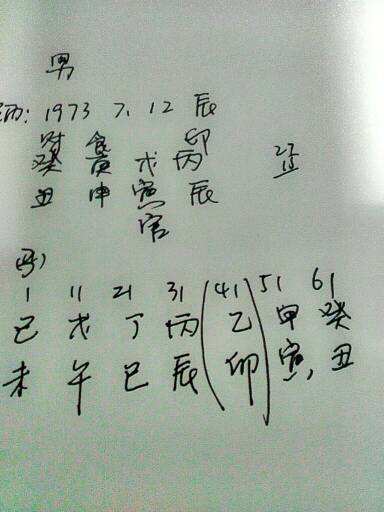 男
1973 7, 12 辰
财 食 印
癸 庚 戊 丙
丑 申 寅 辰
官
1 11 21 31 (41) 51 61
己 戊 丁 丙 乙 甲 癸
未 午 巳 辰 卯 寅, 丑